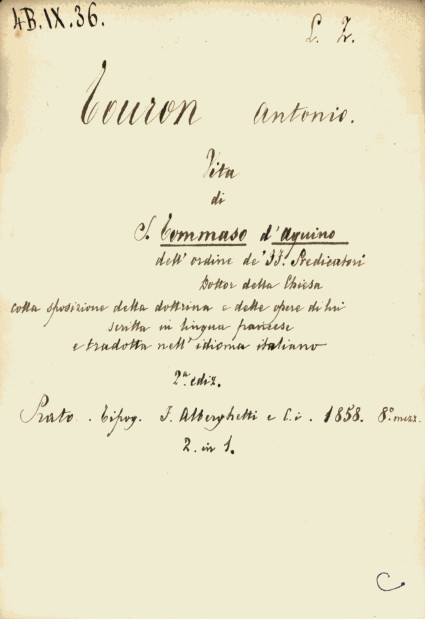 4B.IX.36.
L. Z.
Touron Antonio.
Vita
di
S. Tommaso d'Aquino
dell'ordine de' FF. Predicatori
Dottor della Chiesa
colla sposizione della dottrina e delle opere di lui
scritta in lingua francese
e tradotta nell'idioma italiano
2ª ediz.
Prato. Tipog. F. Alberghetti e C.i. 1858. 8º mezz.
2. in 1.
C